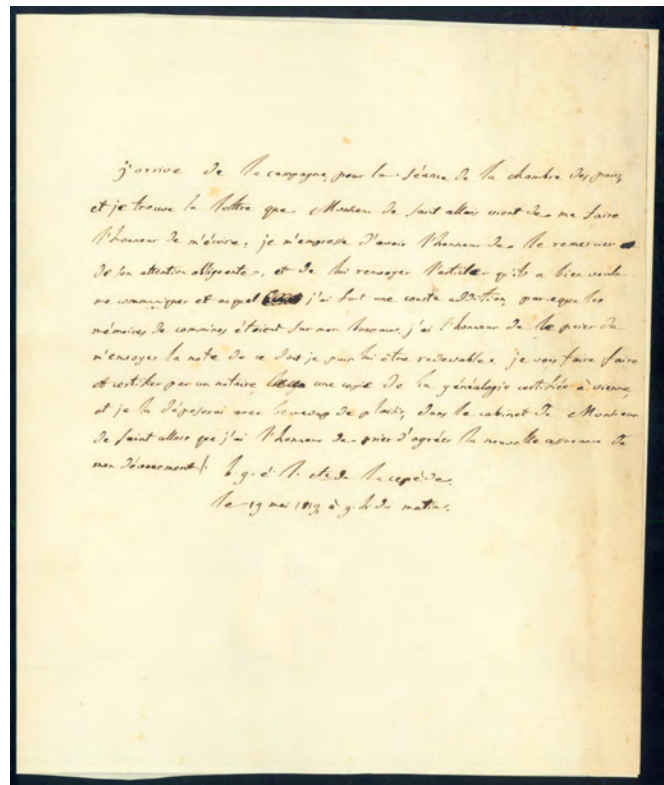 j'arrive de la campagne, pour la séance de la chambre des pairs,
et je trouve la lettre que Monsieur de saint allais vient de me faire
l'honneur de m'écrire; je m'empresse d'avoir l'honneur de le remercier
de son attention obligeante, et de lui renvoyer l'article qu'il a bien voulu
me communiquer et auquel j'ai fait une courte addition, parceque les
mémoires de commines étoient sur mon bureau. j'ai l'honneur de le prier de
m'envoyer la note de ce dont je puis lui être redevable. je vais faire faire
et certifier par un notaire, une copie de la généalogie certifiée à vienne,
et je la déposerai avec beaucoup de plaisir, dans le cabinet de Monsieur
de saint allais que j'ai l'honneur de prier d'agréer la nouvelle assurance de
mon dévouement.
b. g. é. l. cte de lacepède.
le 19 mai 1819 à 9. h. du matin.